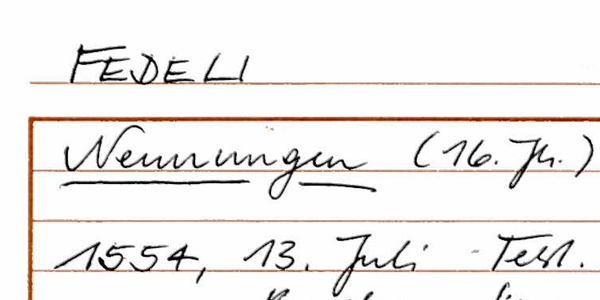 FEDELI
Nennungen (16. Jh.)
1554, 13. Juli - Test.